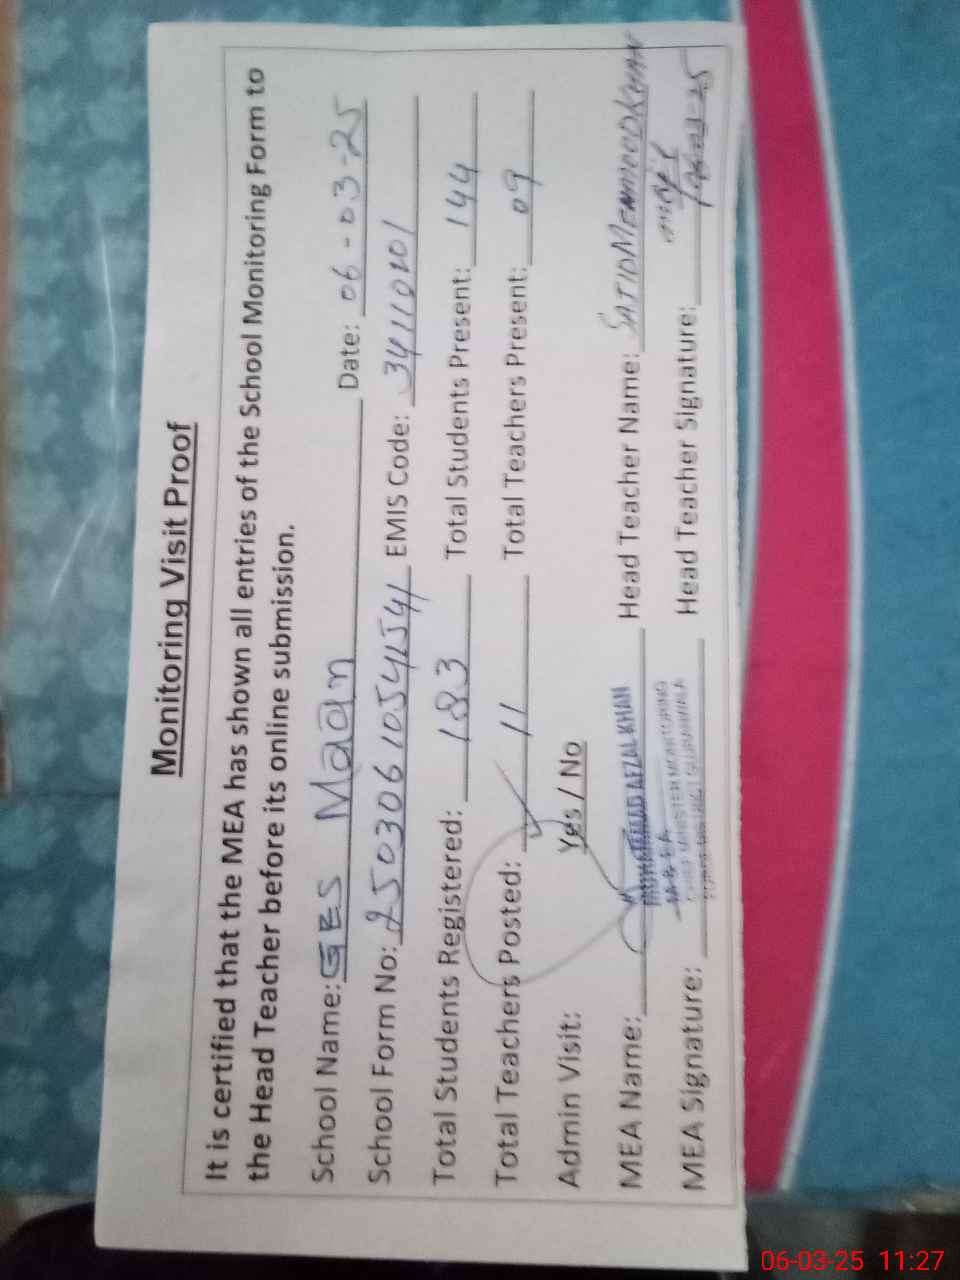 Monitoring Visit Proof
It is certified that the MEA has shown all entries of the School Monitoring Form to
the Head Teacher before its online submission.
School Name: GES Maan Date: 06-03-25
School Form No: 25030610541541 EMIS Code: 34110201
Total Students Registered: 183 Total Students Present: 144
Total Teachers Posted: 11 Total Teachers Present: 09
Admin Visit: Yes / No
MEA Name: AFZAL KHAN Head Teacher Name: SAJID MEHMOOD KHAN
MEA Signature: Head Teacher Signature:
06-03-25
06-03-25 11:27